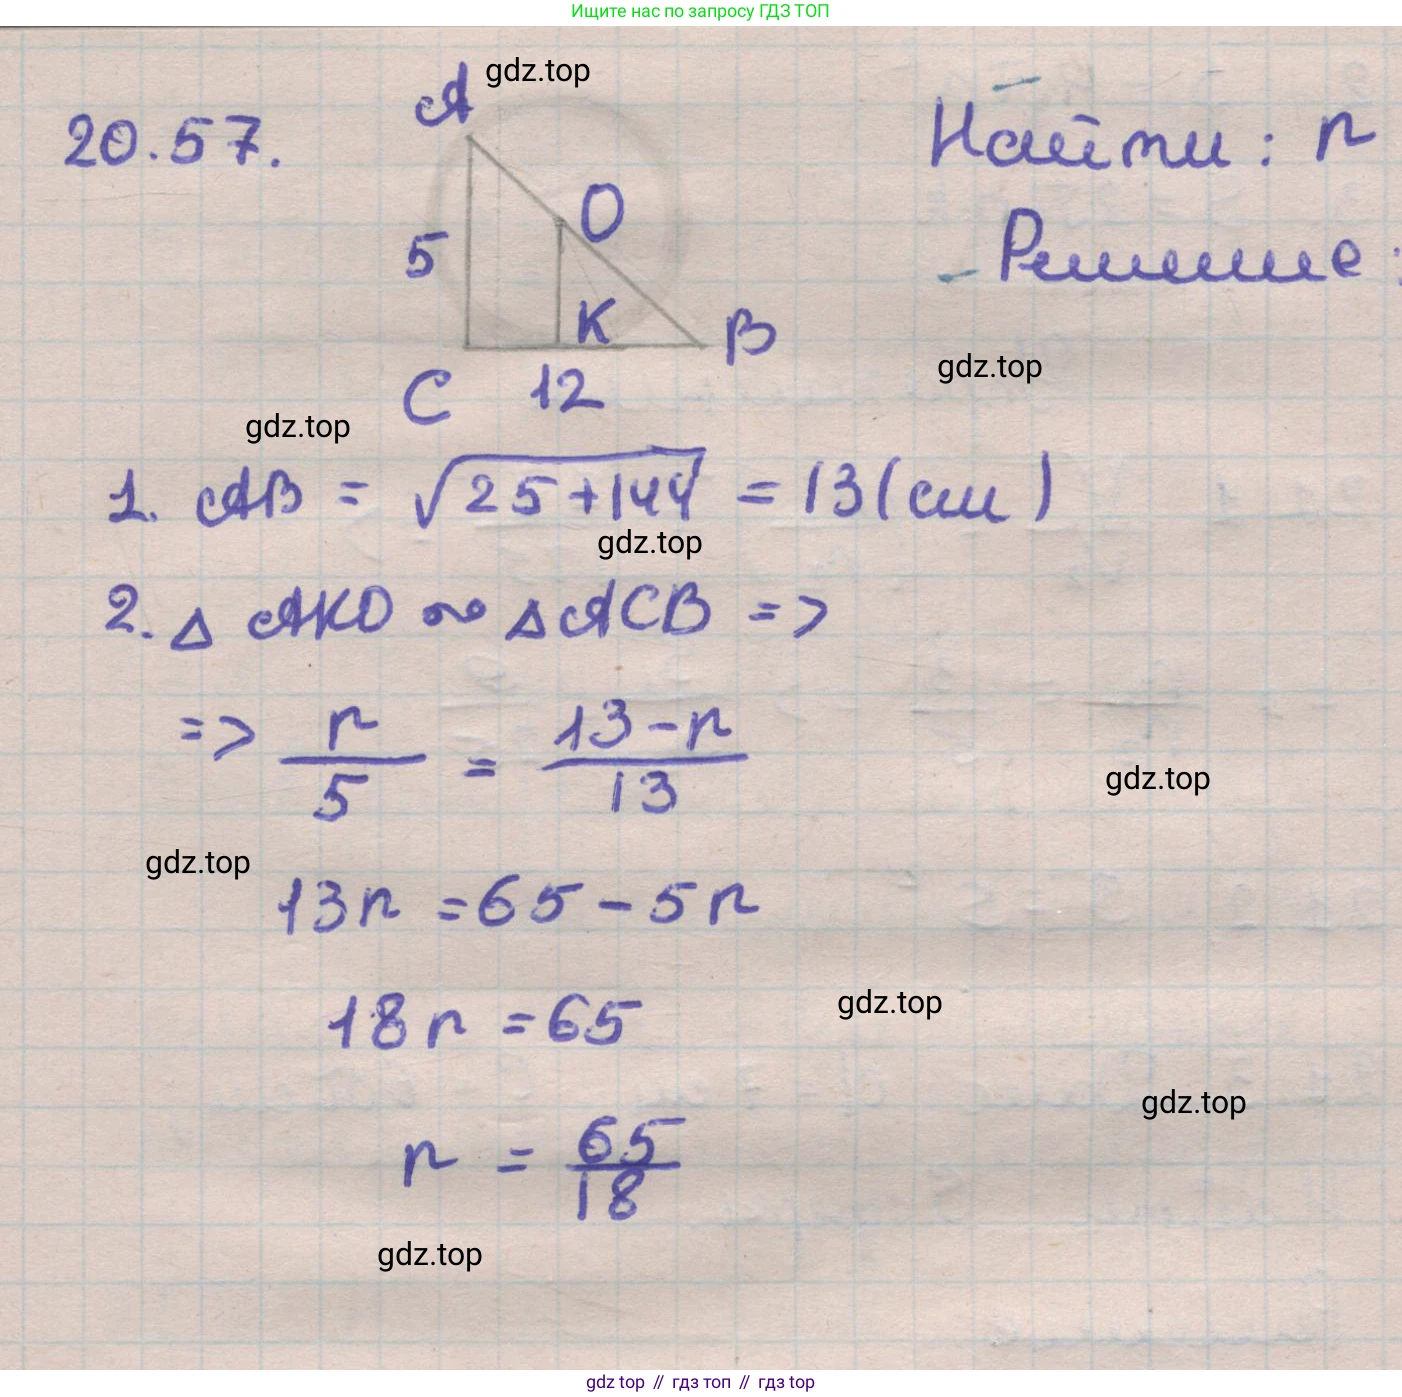 Ищите нас по запросу ГДЗ ТОП
20.57.
A
gdz.top
Найти: r
O
5
Решение:
K
B
gdz.top
C
12
gdz.top
1. AB = √25+144 = 13(см)
gdz.top
2. △ AKO ∾ △ACB =>
=> r/5 = 13-r/13
gdz.top
gdz.top
13r = 65 - 5r
18r = 65
gdz.top
r = 65/18
gdz.top
gdz.top
gdz top // гдз топ // гдз top